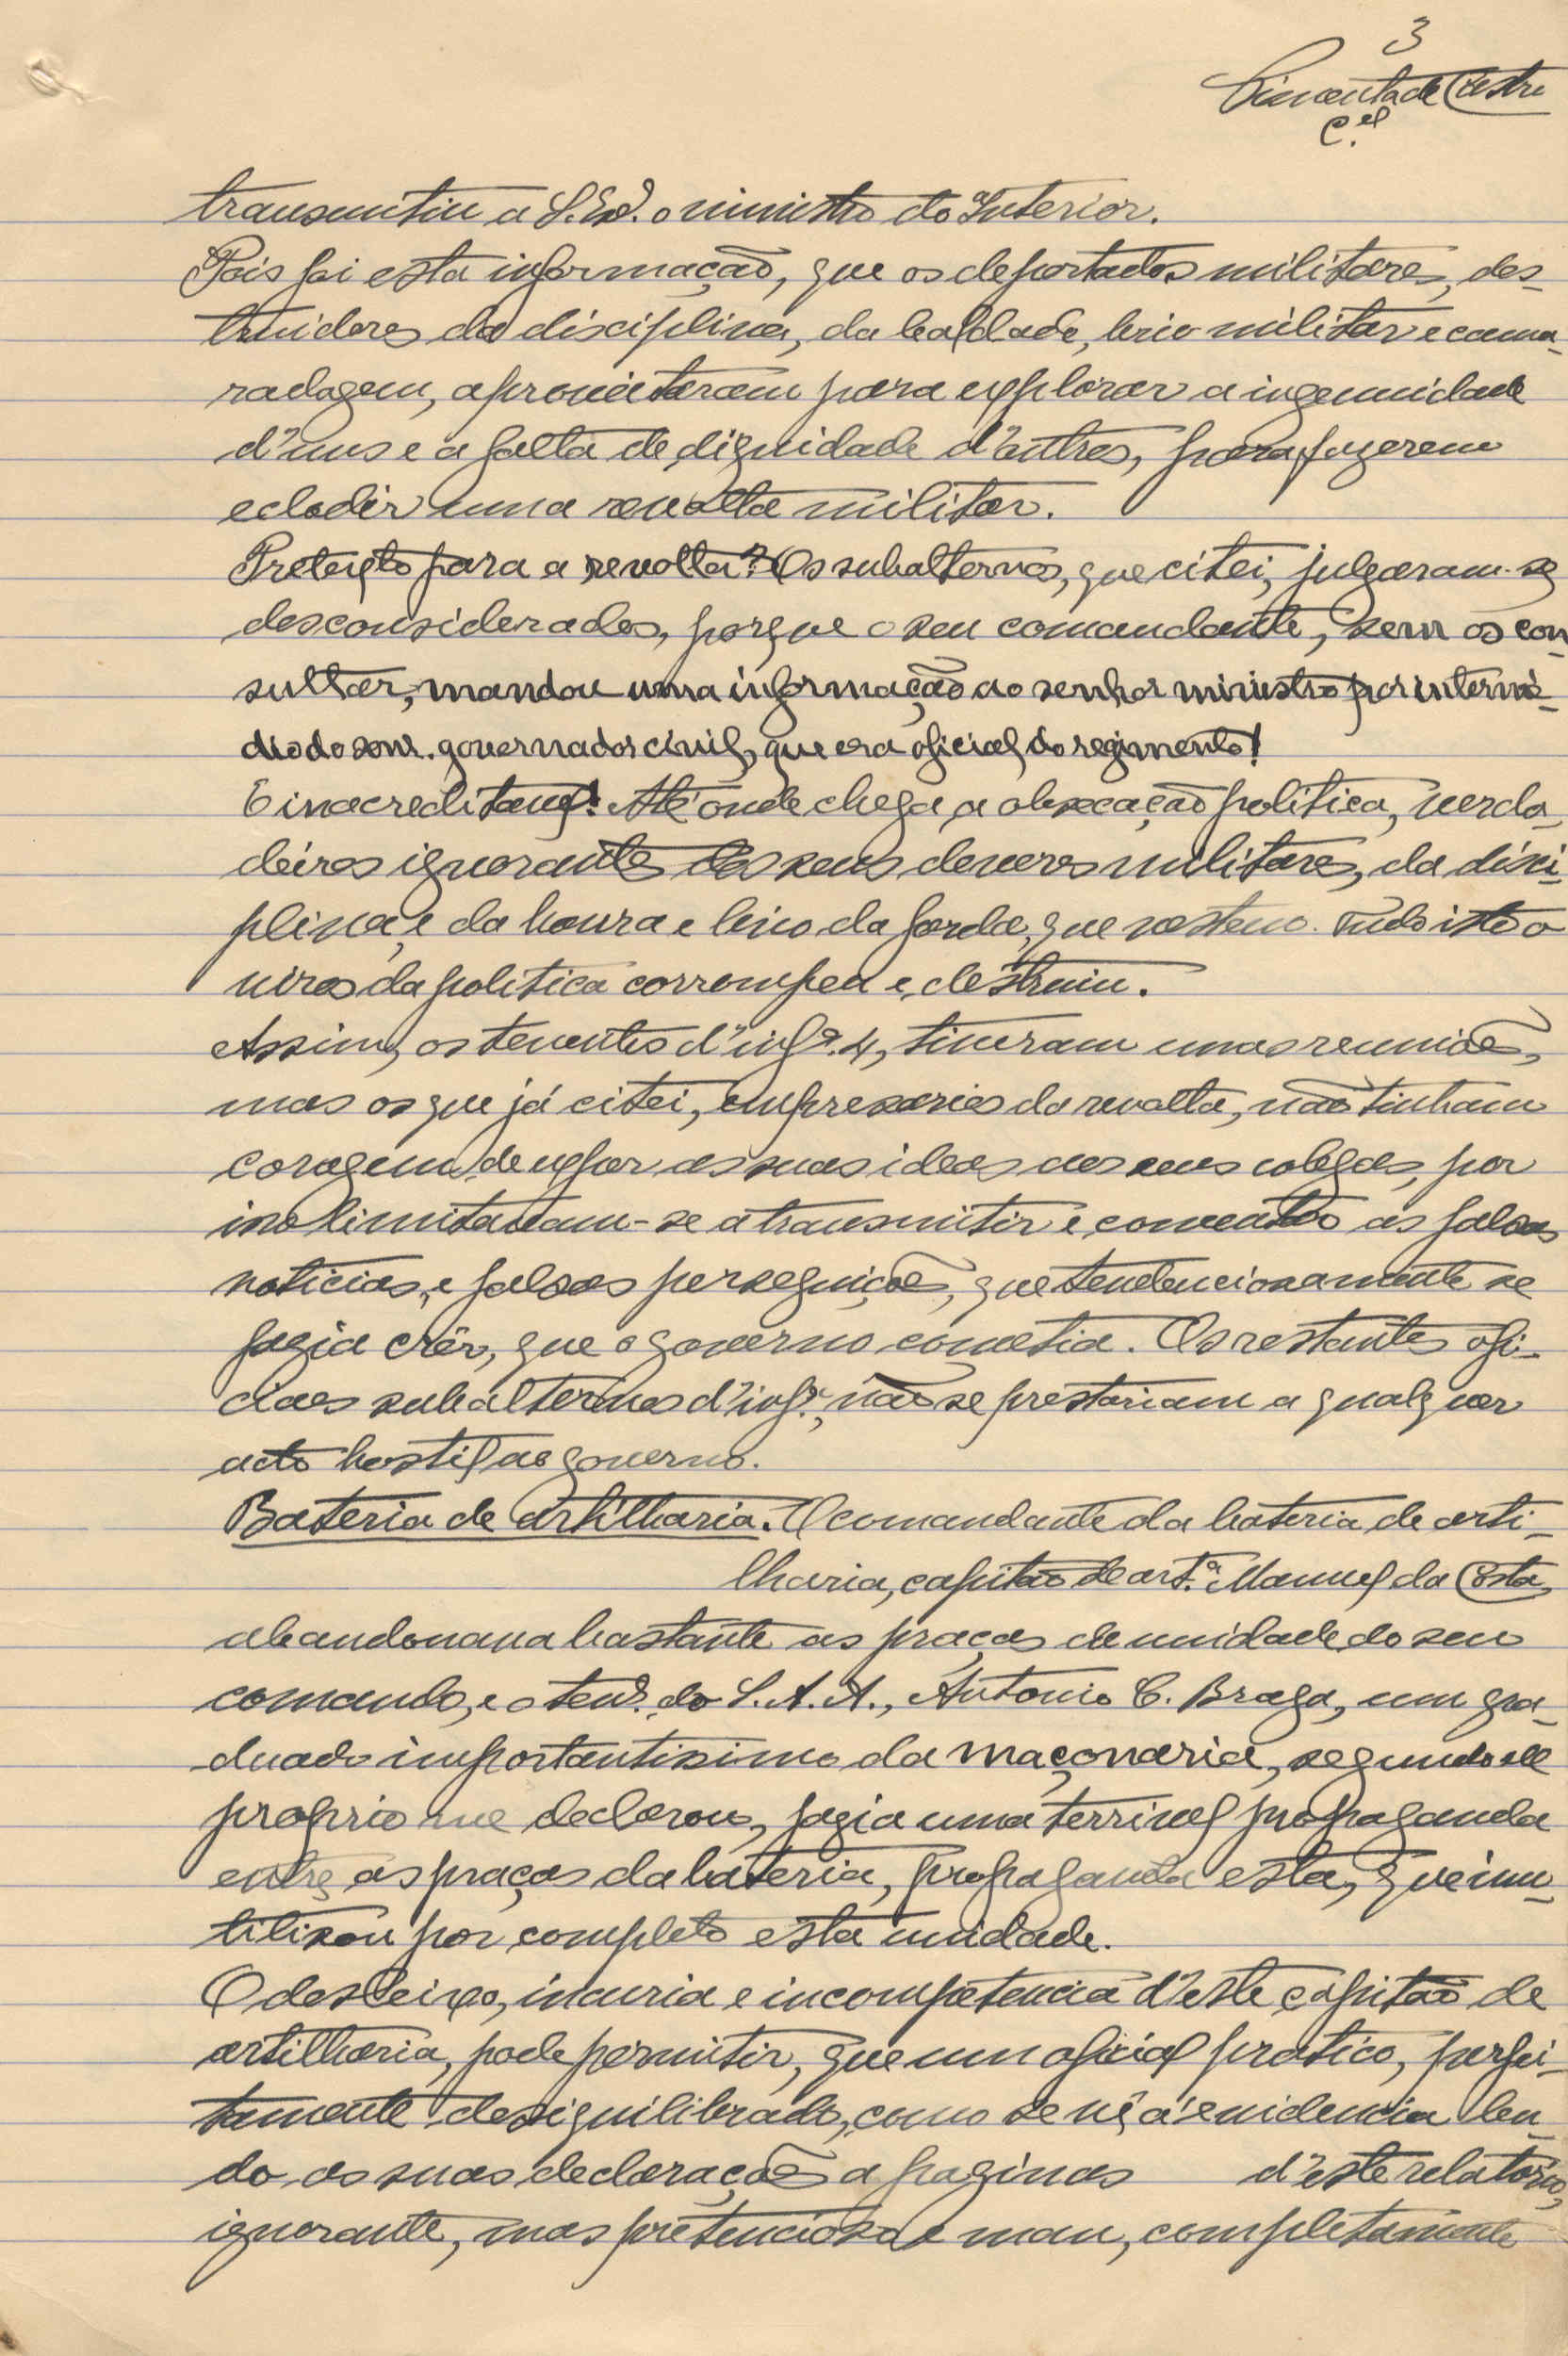 3
Pimenta de Castro
C.el
transmitiu a S. Exª. o ministro do Interior.
Pois foi esta informação, que os deportados militares, des-
truidores da disciplina, da lealdade, brio militar e cama-
radagem, aproveitaram para explorar a ingenuidade
d'uns e a falta de dignidade d'outros, para fazerem
eclodir uma revolta militar.
Pretexto para a revolta? Os subalternos, que citei, julgaram-se
desconsiderados, porque o seu comandante, sem os con-
sultar, mandou uma informação ao senhor ministro por intermé-
dio do senr. governador civil, que era oficial do regimento!
É inacreditavel! Até onde chega a obsecação politica, verda-
deiros ignorantes dos seus deveres militares, da disci-
plina, e da honra e brio da farda, que vestem. Tudo isto o
virus da politica corrompeu e destruiu.
Assim, os tenentes d'infª. 4, tiveram umas reuniões,
mas os que já citei, empresarios da revolta, não tinham
coragem de expôr as suas ideas aos seus colegas, por
isso limitavam-se a transmitir e comentar as falsas
noticias, e falsas perseguições, que tendenciosamente se
fazia crêr, que o governo cometia. Os restantes ofi-
ciaes subalternos d'infª., não se prestariam a qualquer
acto hostil ao governo.
Bateria de artilharia. O comandante da bateria de arti-
lharia, capitão de artª. Manuel da Costa,
abandonava bastante as praças da unidade do seu
comando, e o tenᵉ. do S. A. A., Antonio C. Braga, um gra-
duado importantissimo da maçonaria, segundo ele
proprio me declarou, fazia uma terrivel propaganda
entre as praças da bateria, propaganda esta, que inu-
tilizou por completo esta unidade.
O desleixo, incuria e incompetencia d'este capitão de
artilharia, pode permitir, que um oficial pratico, perfei-
tamente desiquilibrado, como se vê á evidencia len-
do as suas declarações a paginas d'este relatorio,
ignorante, mas pretencioso e mau, completamente